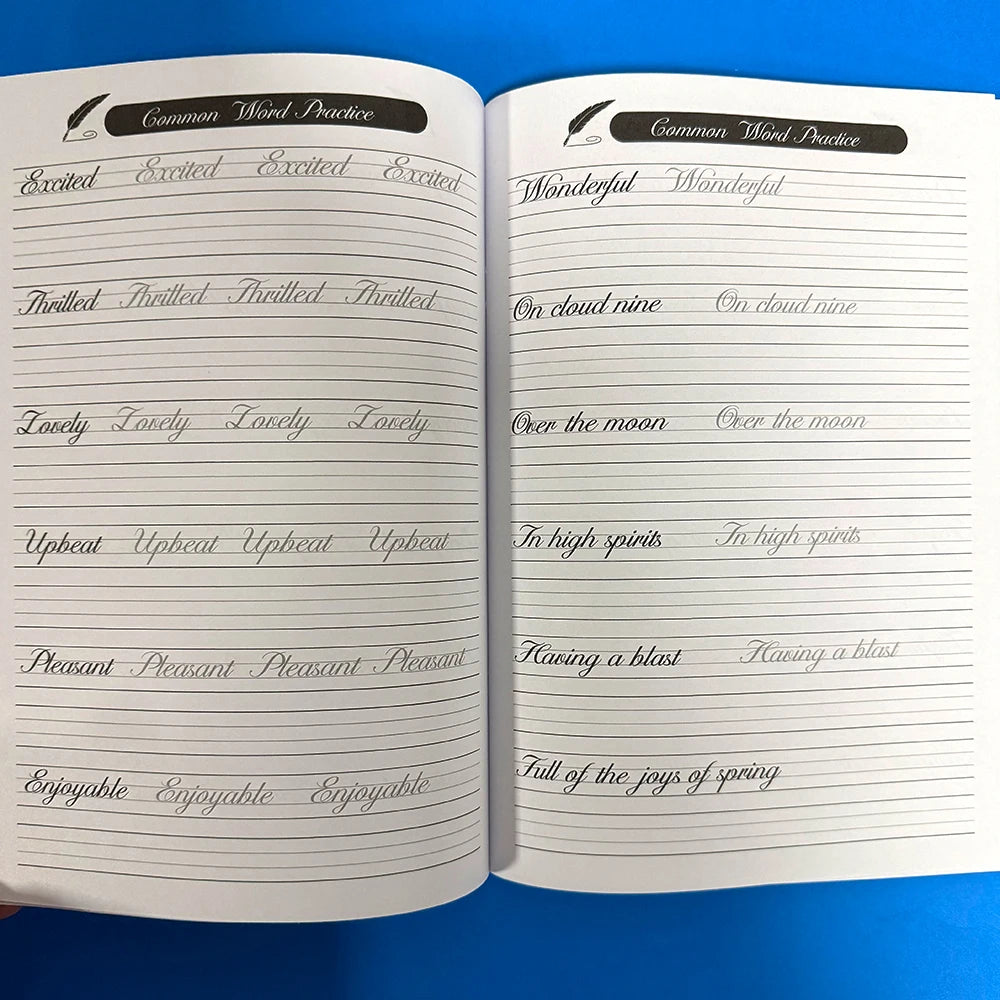 Common Word Practice
Excited Excited Excited Excited
Thrilled Thrilled Thrilled Thrilled
Lovely Lovely Lovely Lovely
Upbeat Upbeat Upbeat Upbeat
Pleasant Pleasant Pleasant Pleasant
Enjoyable Enjoyable Enjoyable
Common Word Practice
Wonderful Wonderful
On cloud nine On cloud nine
Over the moon Over the moon
In high spirits In high spirits
Having a blast Having a blast
Full of the joys of spring